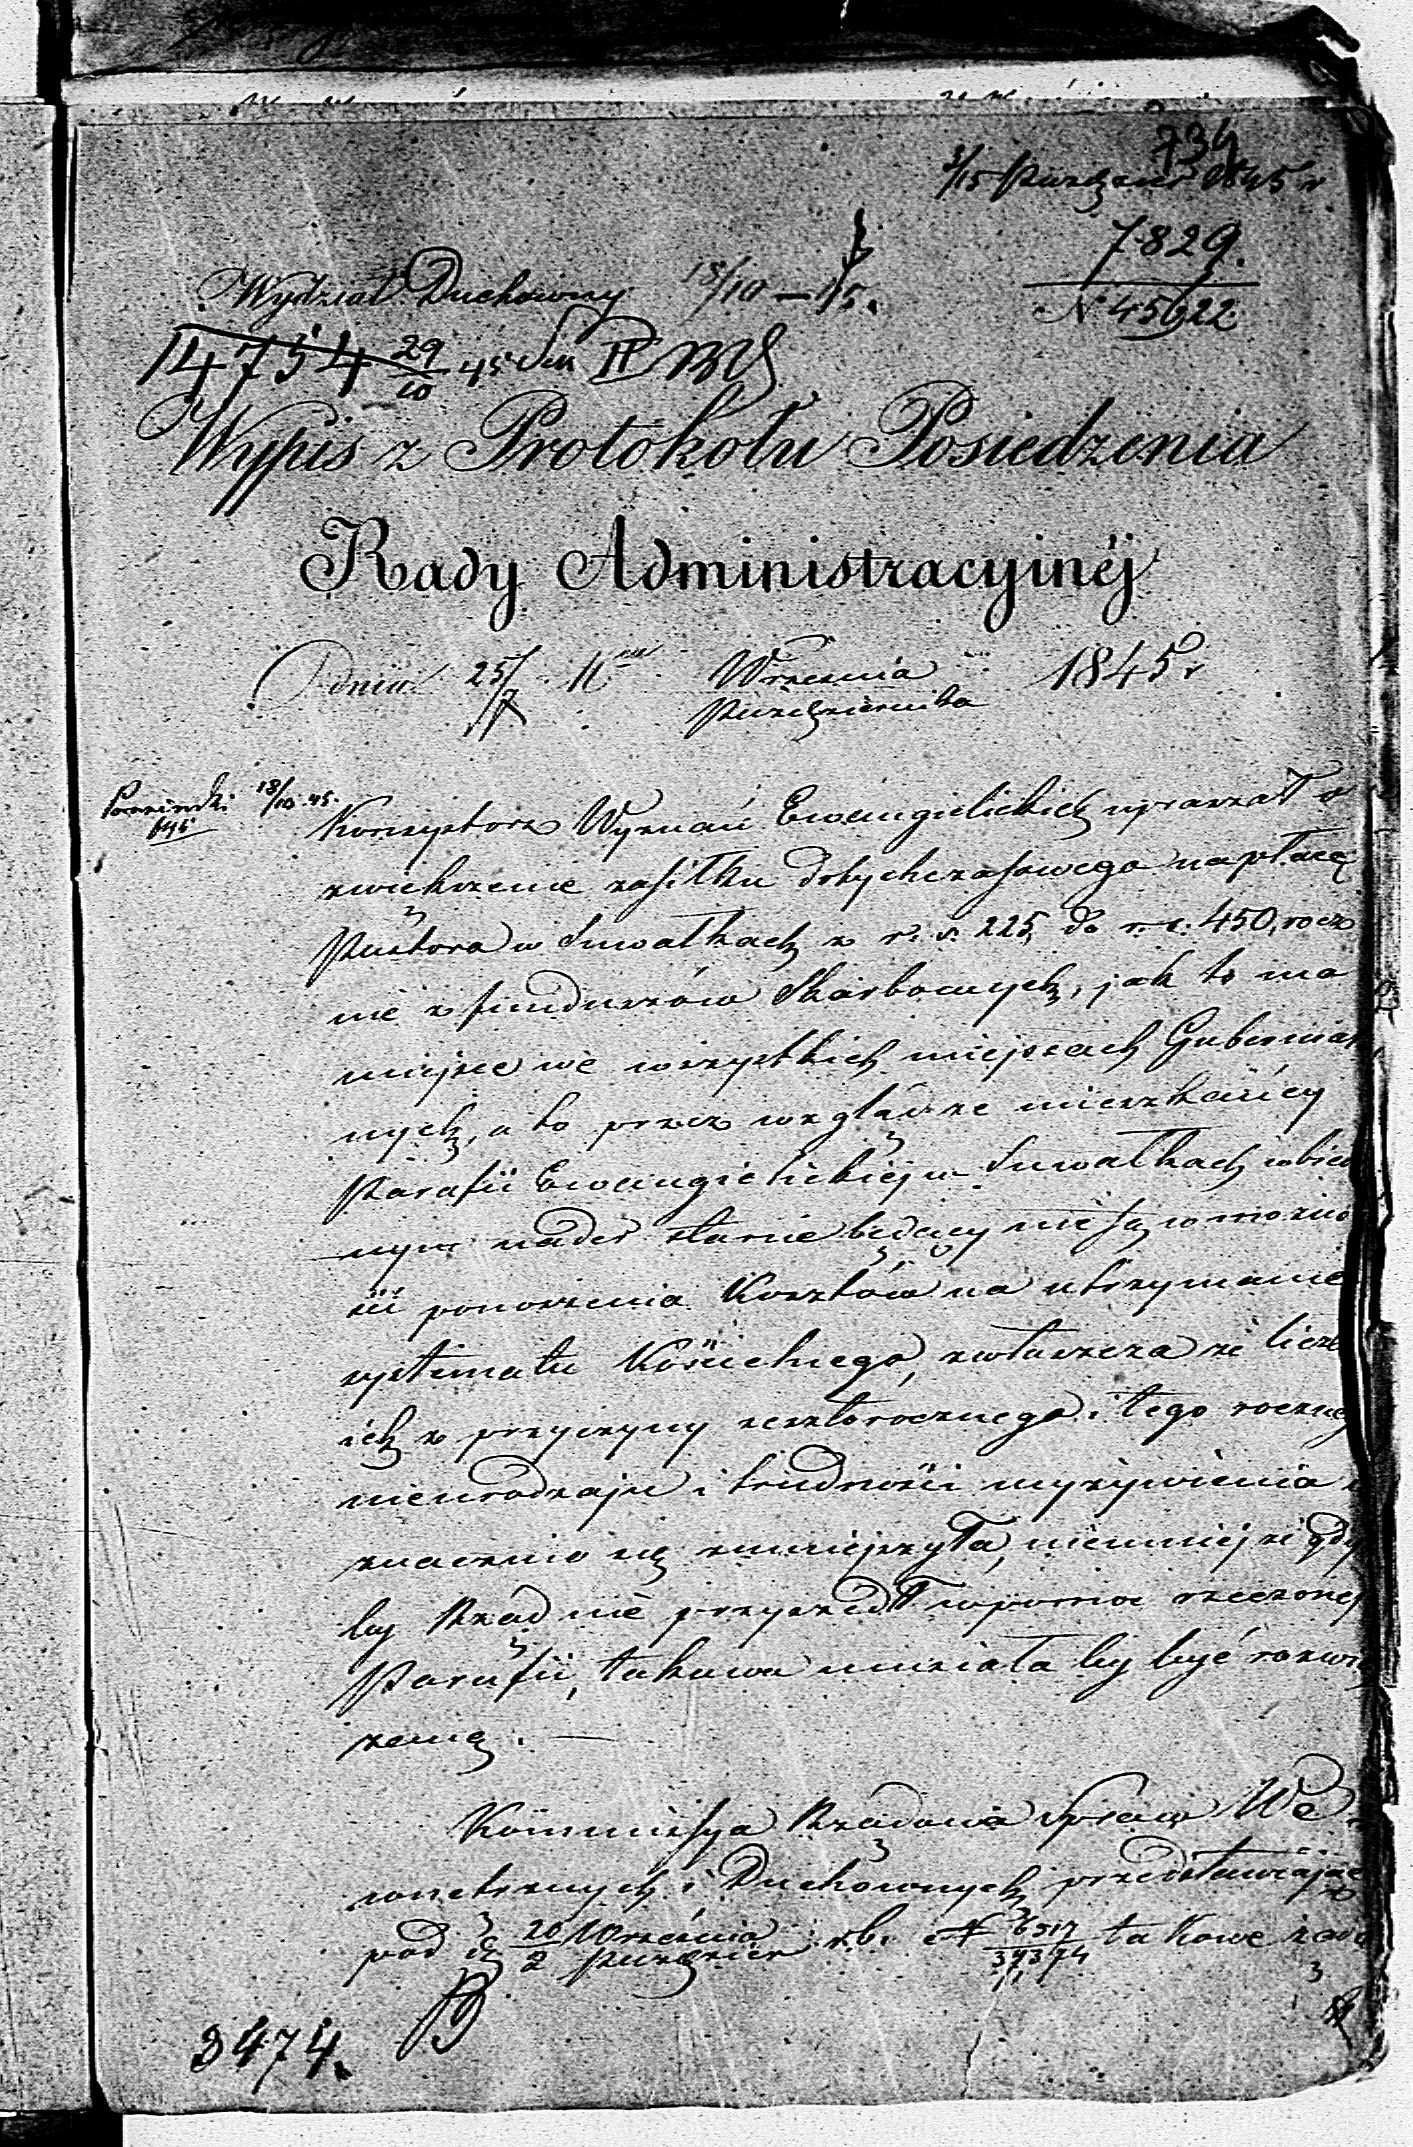 734
3/15 Październ 1845 r
7829.
N 45622
Wydział Duchowny 15/10 — 45.
14754 29/10 45 Sek II
Wypis z Protokołu Posiedzenia
Rady Administracyjnéj
Dnia 25/7 Września Października 1845 r
13/10 45.
Konsystorz Wyznań Ewangielickich upraszał o
zwiększenie zasiłku dotychczasowego na płacę
Pastora w Suwałkach z r. s. 225, do r. s. 450, rocz
nie z funduszów Skarbowych, jak to ma
miejsce we wszystkich miejscach Gubernial
nych, a to przez wzgląd że mieszkańcy
Parafii Ewangielickiej w Suwałkach w bied
nym nader stanie będący nie są w możno
ści ponoszenia Kosztów na utrzymanie
systematu Kościelnego, zwłaszcza że licz
ich z przyczyny zeszłorocznego i tego roczneg
nieurodzaju i trudności wyżywienia
znacznie się zmniejszyła, niemniej że gdy
by Rząd nie przyszedł w pomoc rzeczonej
Parafii, takowa musiała by być rozwią
zaną. —
Kommissya Rządowa Spraw We
wnetrznych i Duchownych przedstawiając
pod d. 20/2 Września Paździer r. b. N 6517/34374 takowe żąda
3474.